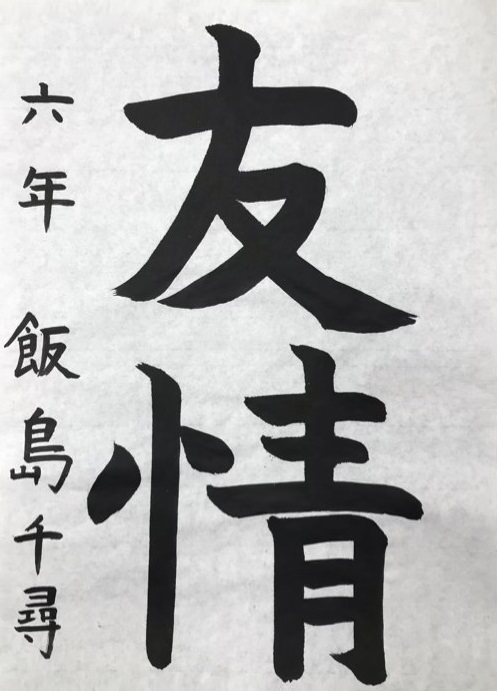 友情
六年 飯島千尋